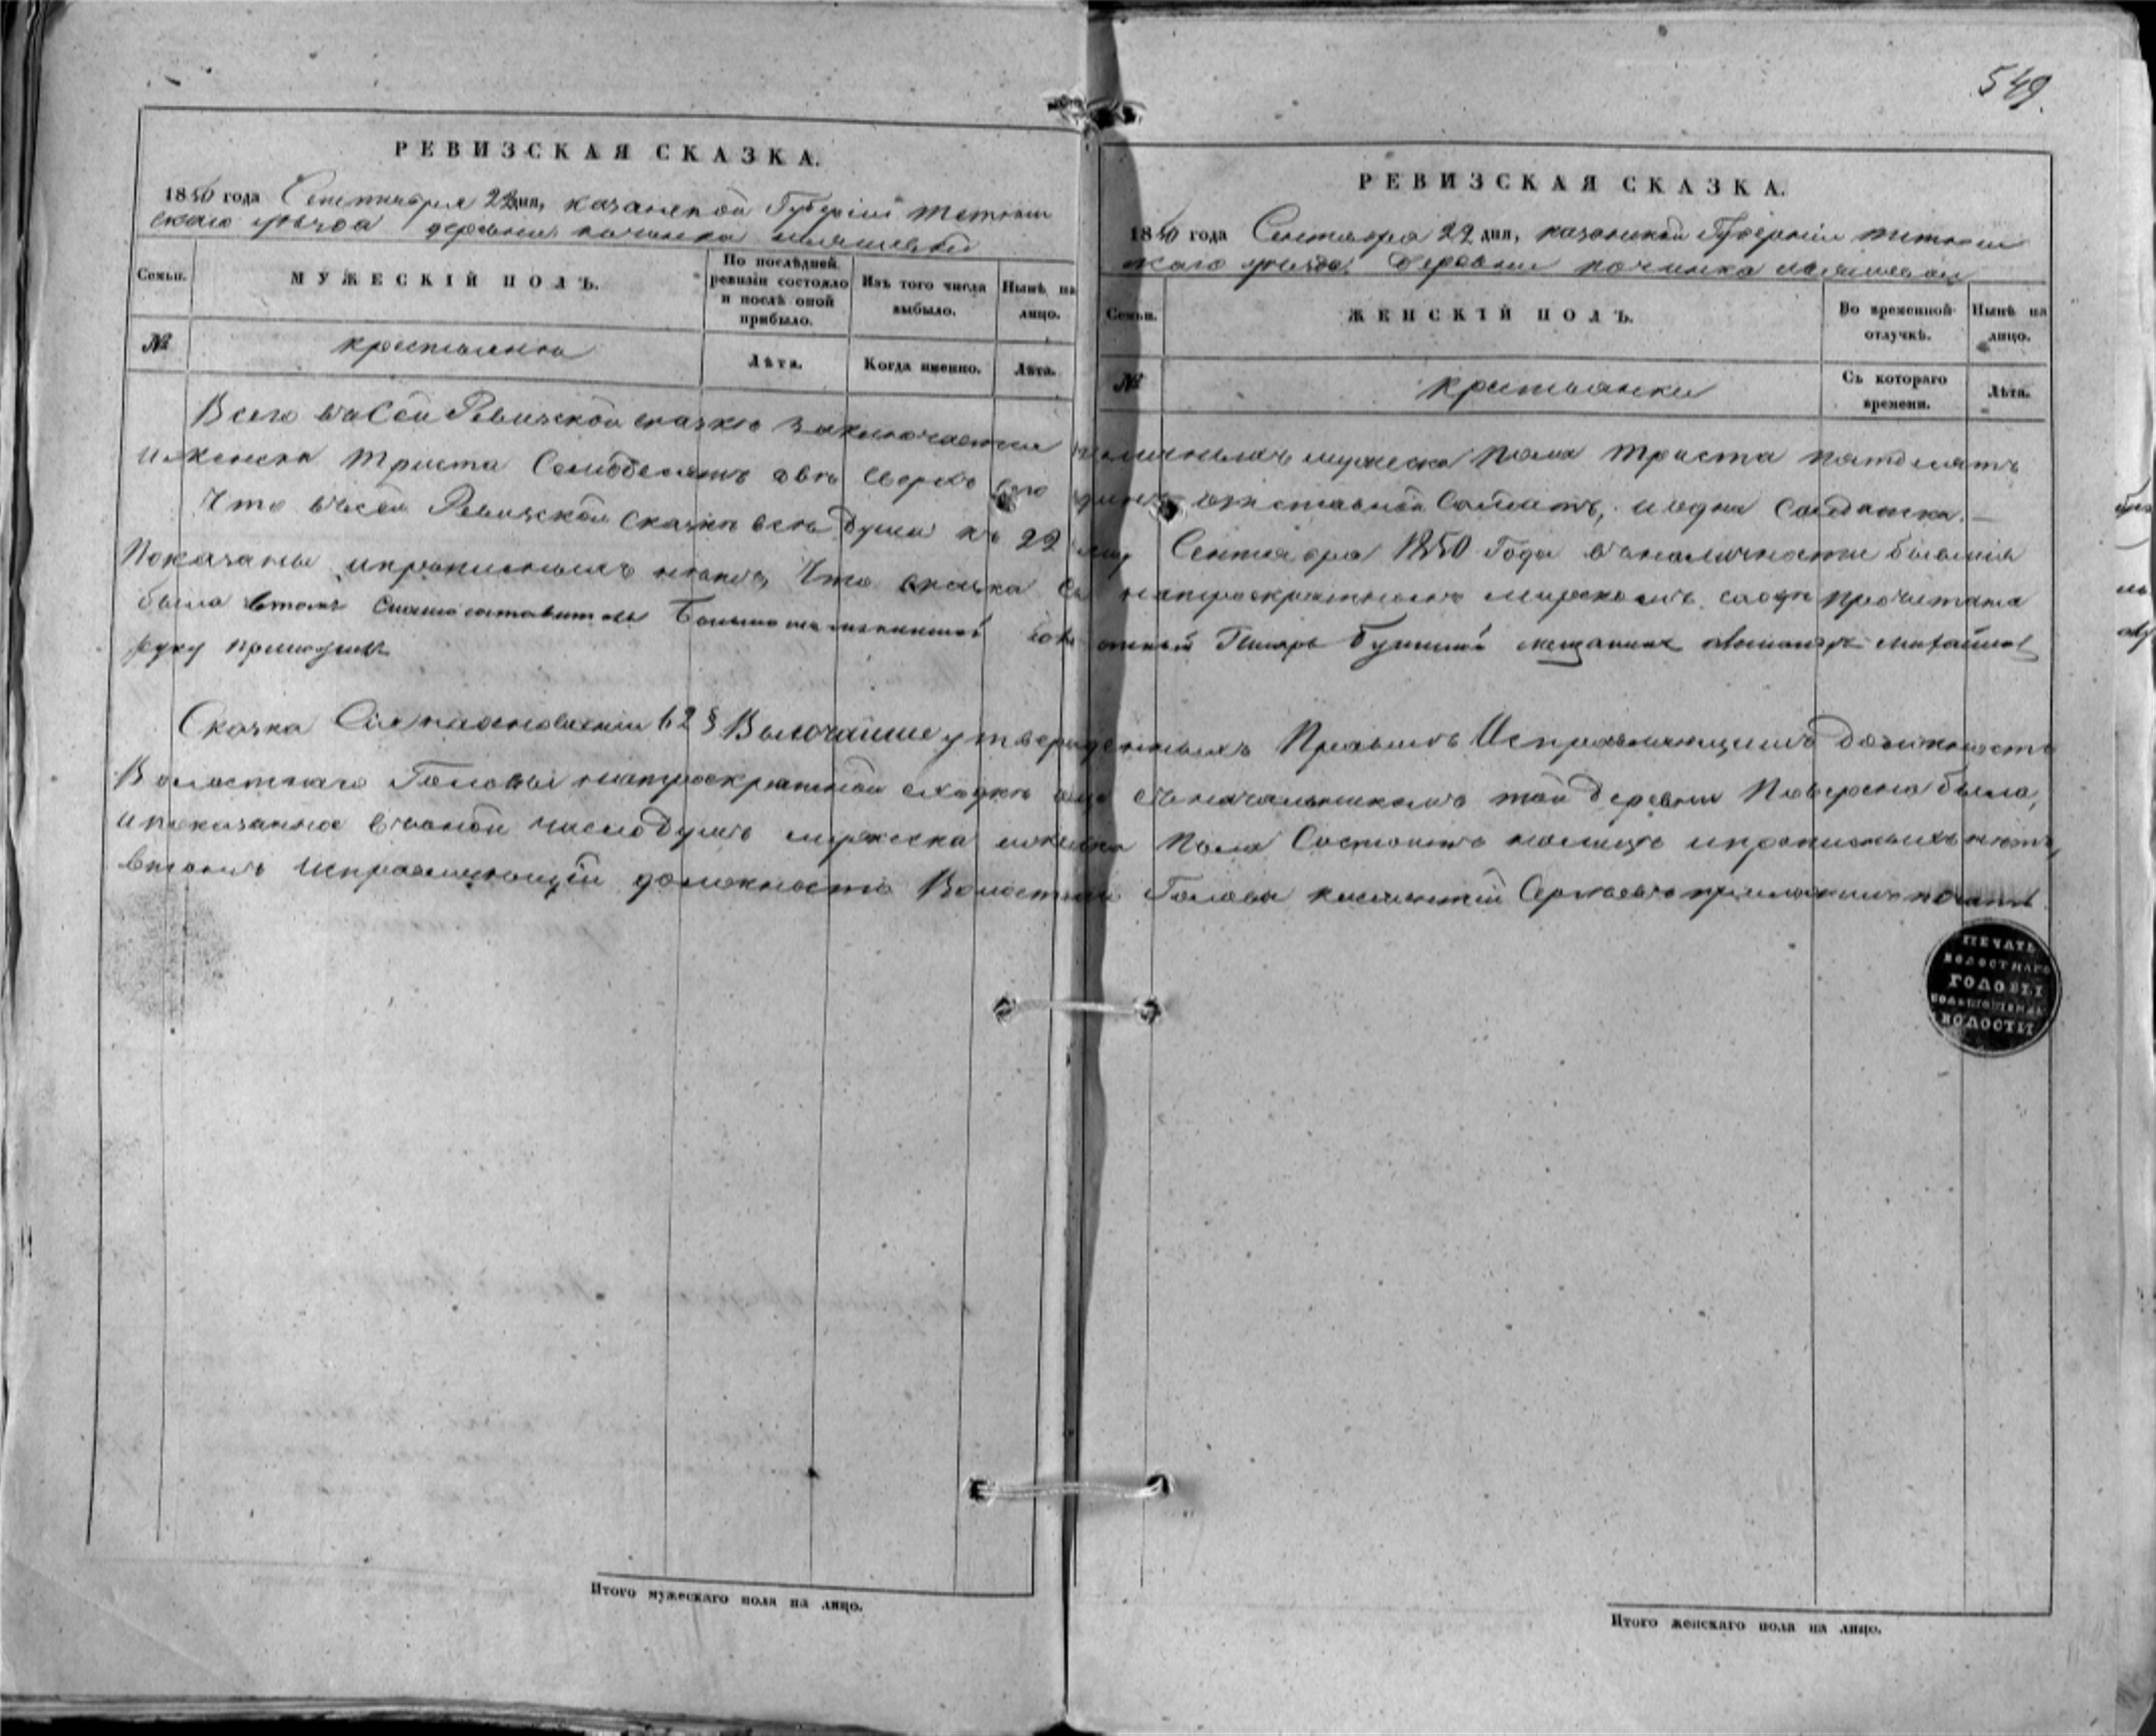 549.
РЕВИЗСКАЯ СКАЗКА.
1850 года Сентября 22 дня, Казанской Губерніи Тетюш
скаго уѣзда деревни починка
Семьи.
МУЖЕСКІЙ ПОЛЪ.
По послѣдней ревизіи состояло и послѣ оной прибыло.
Изъ того числа выбыло.
Нынѣ на лицо.
№
крестьяне
Лѣта.
Когда именно.
Лѣта.
РЕВИЗСКАЯ СКАЗКА.
1850 года Сентября 22 дня, Казанской Губерніи Тетюш
скаго уѣзда. Деревни починка
Семьи.
ЖЕНСКІЙ ПОЛЪ.
Во временной отлучкѣ.
Нынѣ на лицо.
№
крестьянки
Съ котораго времени.
Лѣта.
Всего въ сей Ревизской сказкѣ заключается наличныхъ мужеска пола триста пятдесятъ
и женска триста семдесятъ двѣ сверхъ того отставной солдатъ, и одна солдатка.—
Что въ сей Ревизской сказкѣ всѣ души къ 22 Сентября 1850 года въ наличности бывшія
показаны и прописныхъ нѣтъ, что сказка сія на троекратномъ мирскомъ сходѣ прочитана
была в томъ составитель волостный Писарь мещанинъ Михайлов
руку приложилъ
Сказка сія на основаніи 62 § Высочайше утвержденныхъ Правилъ Исправляющимъ должность
Волостнаго Головы на троекратной сходкѣ съ начальникомъ той деревни повѣрена была,
и показанное въ оной число душъ мужеска и женска пола состоитъ налицо и прописныхъ нѣтъ,
втомъ Исправляющій должность Волостнаго Головы Сергѣевъ приложилъ печать
ПЕЧАТЬ
ВОЛОСТНАГО
ГОЛОВЫ
ВОЛОСТЫ
Итого мужескаго пола на лицо.
Итого женскаго пола на лицо.